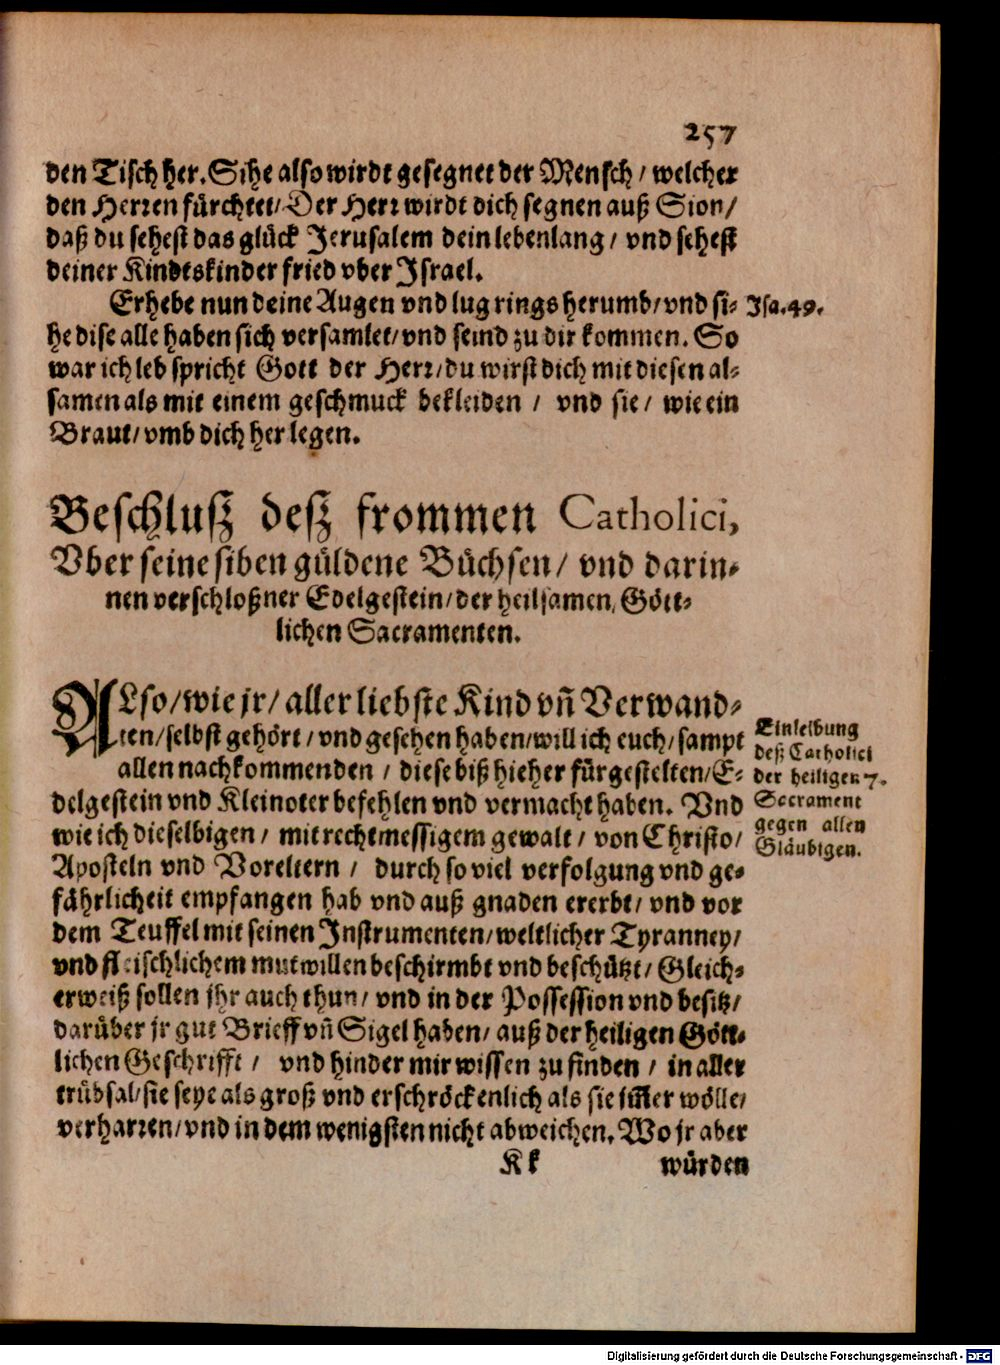 257
den Tisch her. Sihe also wirdt gesegnet der Mensch / welcher
den Herren fürchtet / Der Herr wirdt dich segnen auß Sion /
daß du sehest das glück Jerusalem dein lebenlang / vnd sehest
deiner Kindtskinder fried vber Israel.
Erhebe nun deine Augen vnd lug rings herumb / vnd si- Isa. 49.
he dise alle haben sich versamlet / vnd seind zu dir kommen. So
war ich leb spricht Gott der Herr / du wirst dich mit diesen al-
samen als mit einem geschmuck bekleiden / vnd sie / wie ein
Braut / vmb dich her legen.
Beschluß deß frommen Catholici,
Vber seine siben güldene Büchsen / vnd darin-
nen verschloßner Edelgestein / der heilsamen, Gött-
lichen Sacramenten.
ALso / wie jr / aller liebste Kind vñ Verwand-
ten / selbst gehört / vnd gesehen haben / will ich euch / sampt
allen nachkommenden / diese biß hieher fürgestelten / E-
delgestein vnd Kleinoter befehlen vnd vermacht haben. Vnd
wie ich dieselbigen / mit rechtmessigem gewalt / von Christo /
Aposteln vnd Voreltern / durch so viel verfolgung vnd ge-
fährlicheit empfangen hab vnd auß gnaden ererbt / vnd vor
dem Teuffel mit seinen Instrumenten / weltlicher Tyranney /
vnd fleischlichem mutwillen beschirmbt vnd beschützt / Gleich-
erweiß sollen jhr auch thun / vnd in der Possession vnd besitz /
darüber jr gut Brieff vñ Sigel haben / auß der heiligen Gött-
lichen Geschrifft / vnd hinder mir wissen zu finden / in aller
trübsal / sie seye als groß vnd erschröckenlich als sie im̃er wölle /
verharren / vnd in dem wenigsten nicht abweichen. Wo jr aber
Kk würden
Einleibung
deß Catholici
der heiligen 7.
Sacrament
gegen allen
Gläubigen.
Digitalisierung gefördert durch die Deutsche Forschungsgemeinschaft - DFG